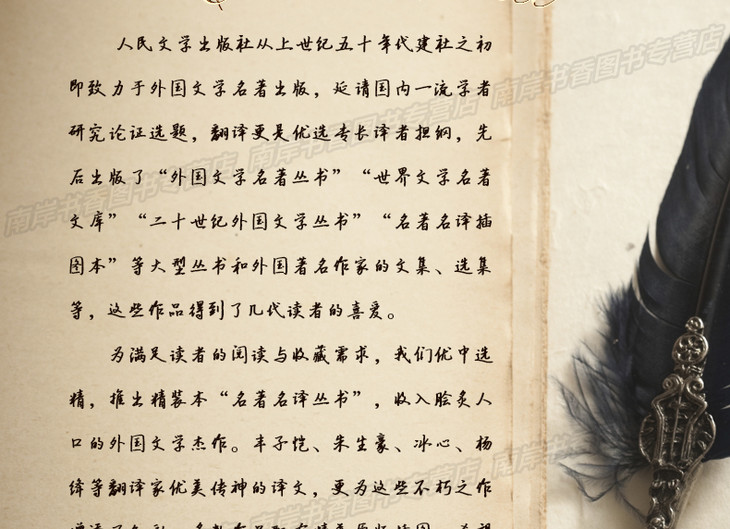 人民文学出版社从上世纪五十年代建社之初
即致力于外国文学名著出版，延请国内一流学者
研究论证选题，翻译更是优选专长译者担纲，先
后出版了“外国文学名著丛书”“世界文学名著
文库”“二十世纪外国文学丛书”“名著名译插
图本”等大型丛书和外国著名作家的文集、选集
等，这些作品得到了几代读者的喜爱。
为满足读者的阅读与收藏需求，我们优中选
精，推出精装本“名著名译丛书”，收入脍炙人
口的外国文学杰作。丰子恺、朱生豪、冰心、杨
绛等翻译家优美传神的译文，更为这些不朽之作
南岸书香图书专营店
南岸书香图书专营店
南岸书香图书专营店